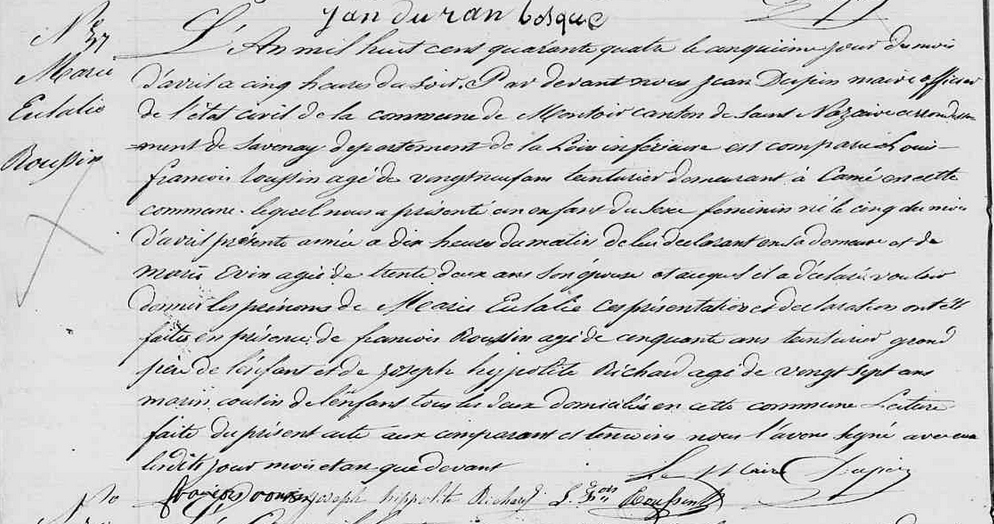 Jan duran bosque
N° 37
Marie
Eulalie
Roussin
L'An mil huit cent quarante quatre le cinquième jour du mois
d'avril a cinq heures du soir. Par devant nous Jean Dupin maire officier
de l'état civil de la commune de Montoir canton de Saint Nazaire arrondisse
ment de Savenay departement de la Loire inférieure est comparu Louis
francois Roussin agé de vingt neuf ans teinturier demeurant à en cette
commune. lequel nous a présenté un enfant du sexe feminin né le cinq du mois
d'avril présente année a dix heures du matin de lui declarant en sa demeure et de
marie Evin agée de trente deux ans son épouse et auquel il a déclaré vouloir
donner les prénoms de Marie Eulalie Ces présentation et declaration ont été
faites en présence de francois Roussin agé de cinquante ans teinturier grand
père de l'enfant et de Joseph hyppolite Richard agé de vingt sept ans
marin cousin de l'enfant tous les deux domiciliés en cette commune Lecture
faite du présent acte aux comparant et temoins nous l'avons signé avec eux
lesdits jour mois et an que devant
Le Maire Dupin
joseph hippolite Richard L. Fois Roussin